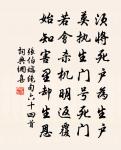 須將死戶為生戶
莫執生門號死門
若會杀机明返覆
始知害里却生恩
張伯端絕句六十四首
詞典網